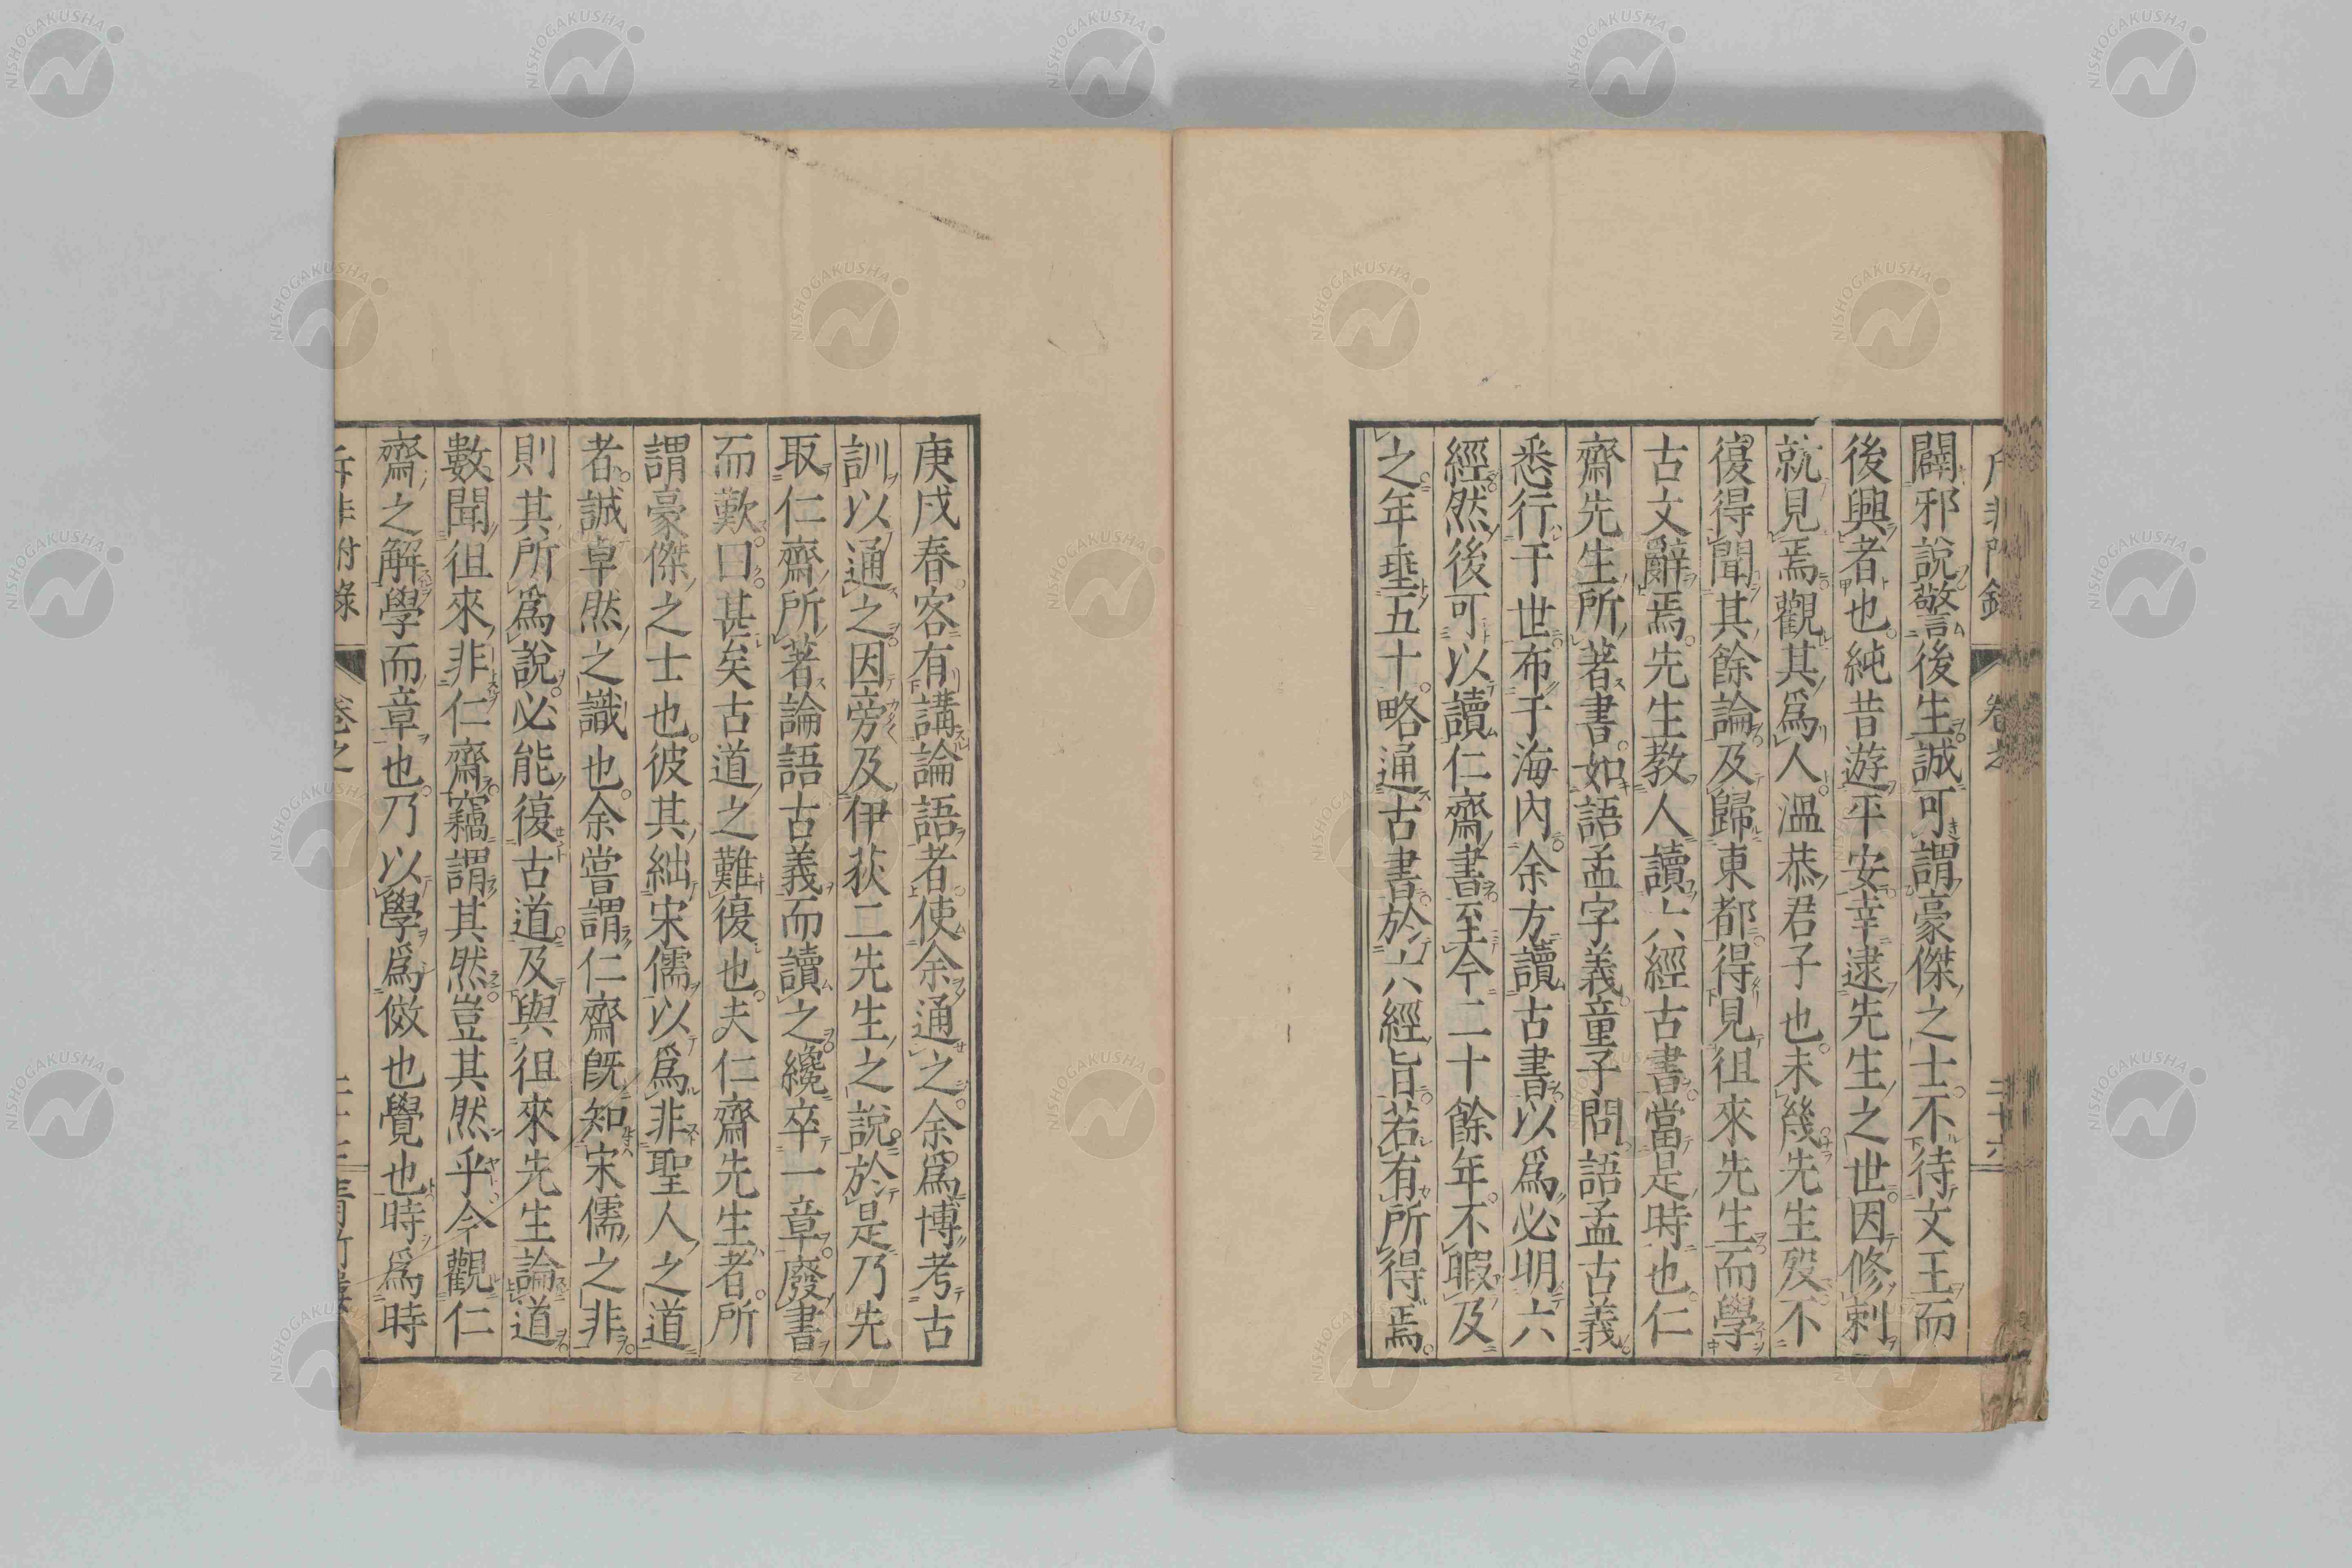 闢邪說警後生誠可謂豪傑之士不待文王而
後興者也純昔遊平安幸逮先生之世因修刺
就見焉觀其爲人溫恭君子也未幾先生歿不
復得聞其餘論及歸東都得見徂來先生而學
古文辭焉先生教人讀六經古書當是時也仁
齋先生所著書如語孟字義童子問語孟古義
悉行于世布于海內余方讀古書以爲必明六
經然後可以讀仁齋書至今二十餘年不暇及
之年垂五十略通古書於六經旨若有所得焉
庚戌春客有講論語者使余通之余爲博考古
訓以通之因旁及伊荻二先生之說於是乃先
取仁齋所著論語古義而讀之纔卒一章廢書
而歎曰甚矣古道之難復也夫仁齋先生者所
謂豪傑之士也彼其絀宋儒以爲非聖人之道
者誠卓然之識也余嘗謂仁齋旣知宋儒之非
則其所爲說必能復古道及與徂來先生論道
數聞徂來非仁齋竊謂其然豈其然乎今觀仁
齋之解學而章也乃以學爲傚也覺也時爲時
附錄
NISHOGAKUSHA